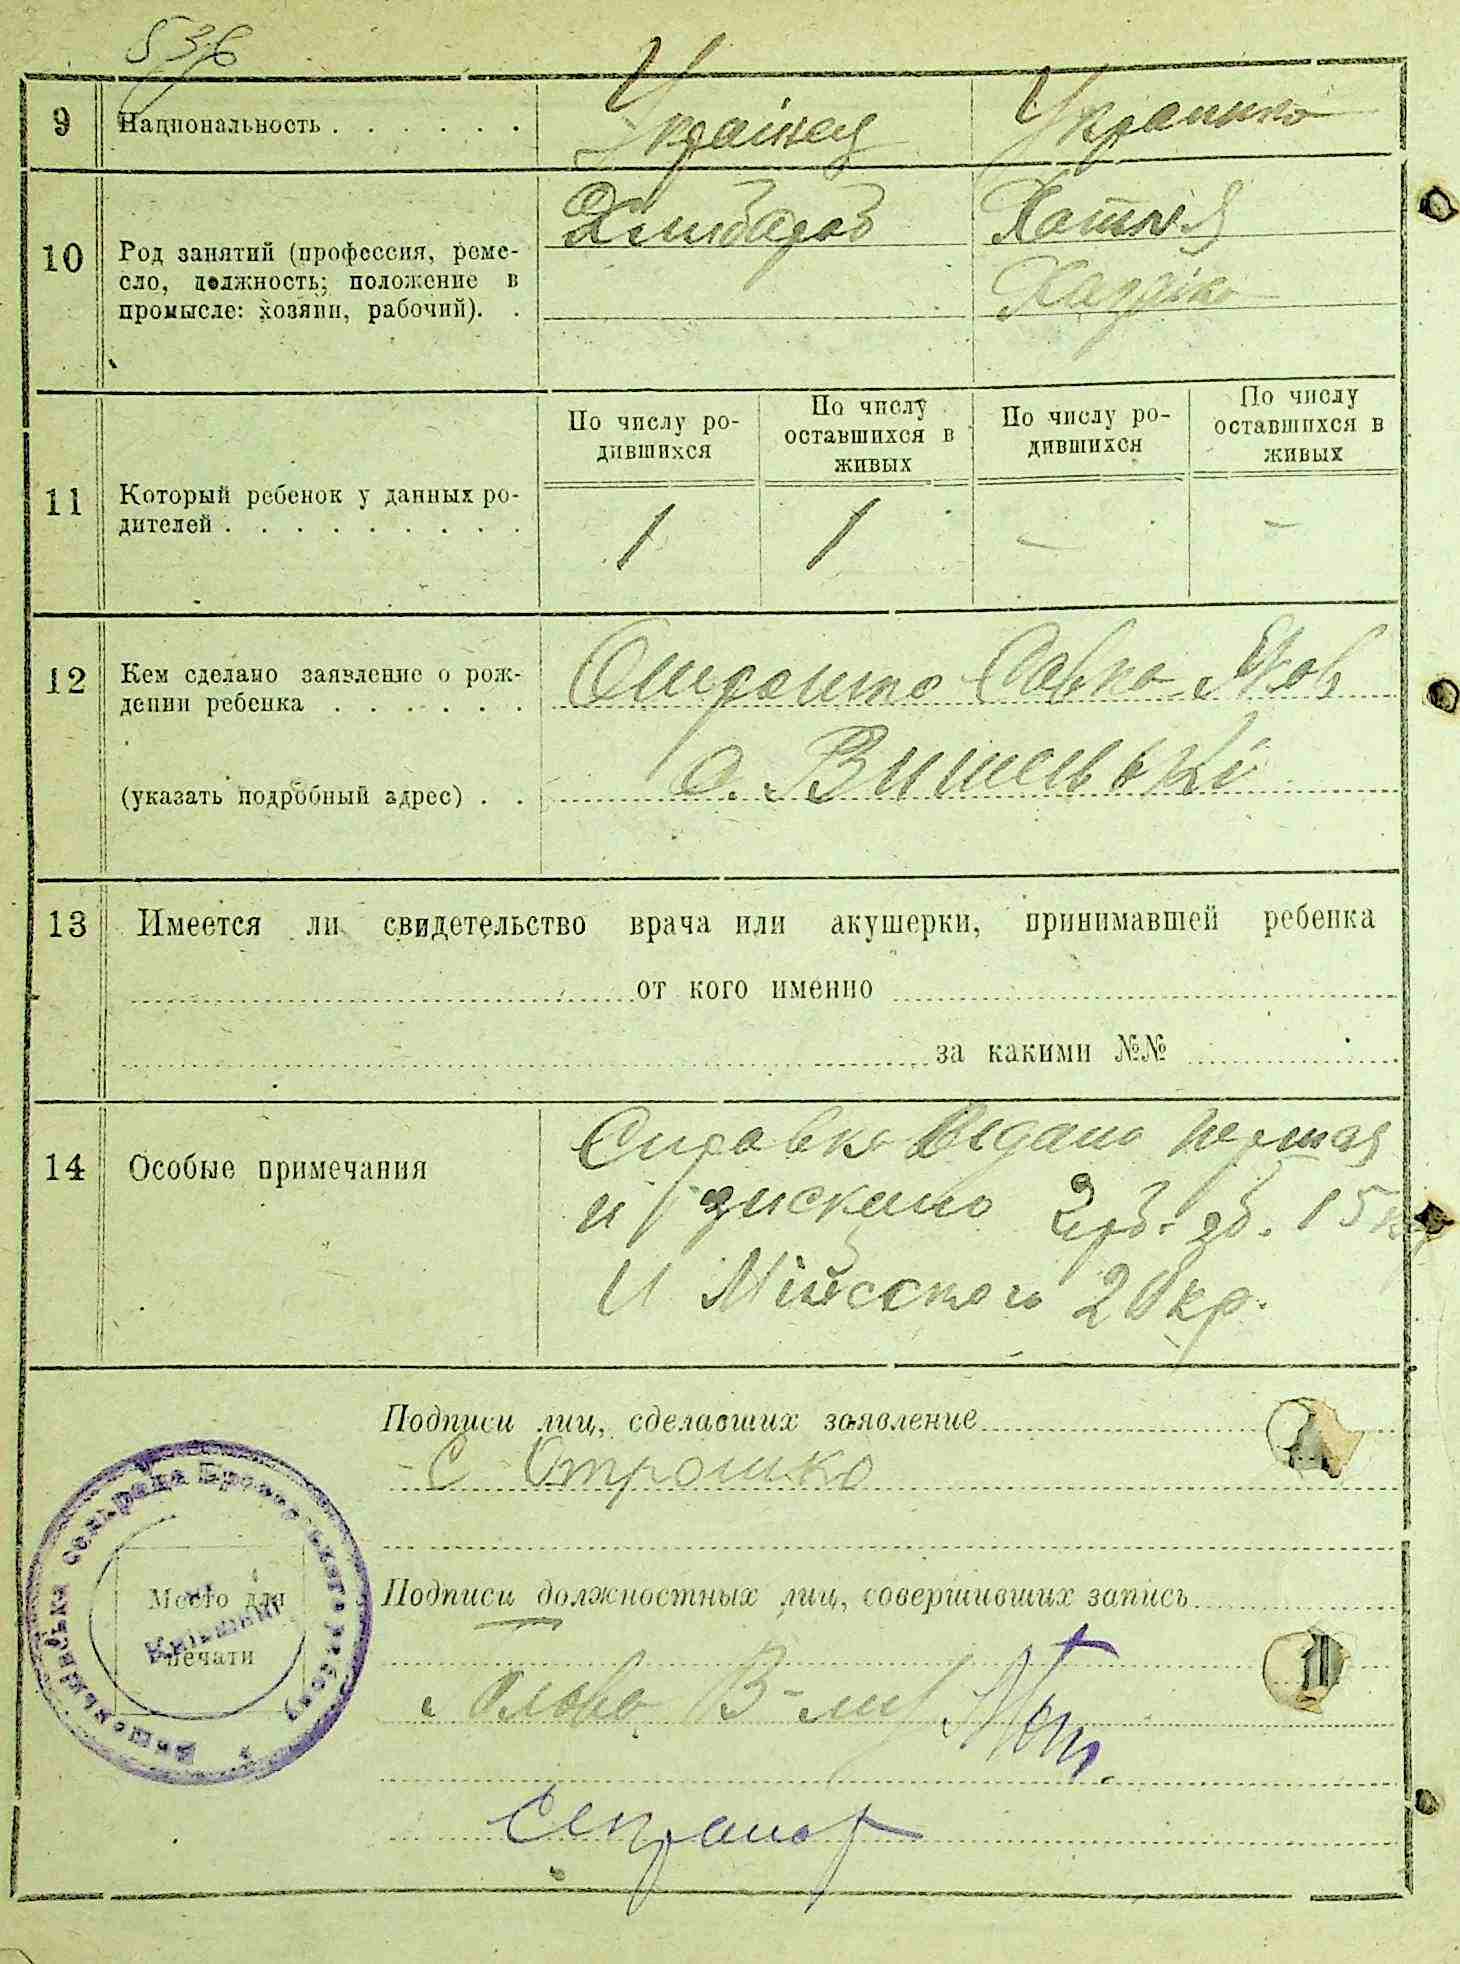 536
9 Национальность . . . . . . Украінец Украинка
10 Род занятий (профессия, реме-
сло, должность; положение в
промысле: хозяин, рабочий). .
Хлибороб Хатня
11 Который ребенок у данных ро-
дителей . . . . . . . . .
По числу ро-
дившихся
По числу
оставшихся в
живых
По числу ро-
дившихся
По числу
оставшихся в
живых
1 1 - -
12 Кем сделано заявление о рож-
дении ребенка . . . . . .
Савка Яков
(указать подробный адрес) . .
с. Вишеньки
13 Имеется ли свидетельство врача или акушерки, принимавшей ребенка
от кого именно
за какими №№
14 Особые примечания
Справка видана
и зискано зб. 15
и Мійсского 20 кр.
Подписи лиц, сделавших заявление
С Отрошко
Подписи должностных лиц, совершивших запись
Место для
печати
сельрада
Голова
Секретар